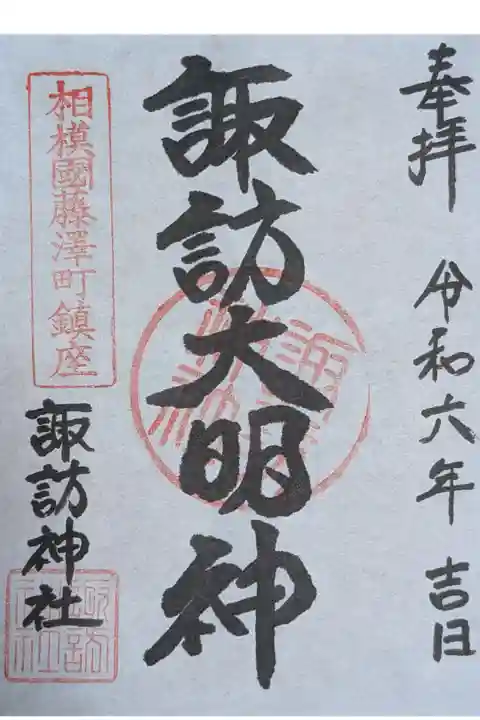 奉拝 令和六年吉日
諏訪大明神
相模國藤澤町鎮座
諏訪神社